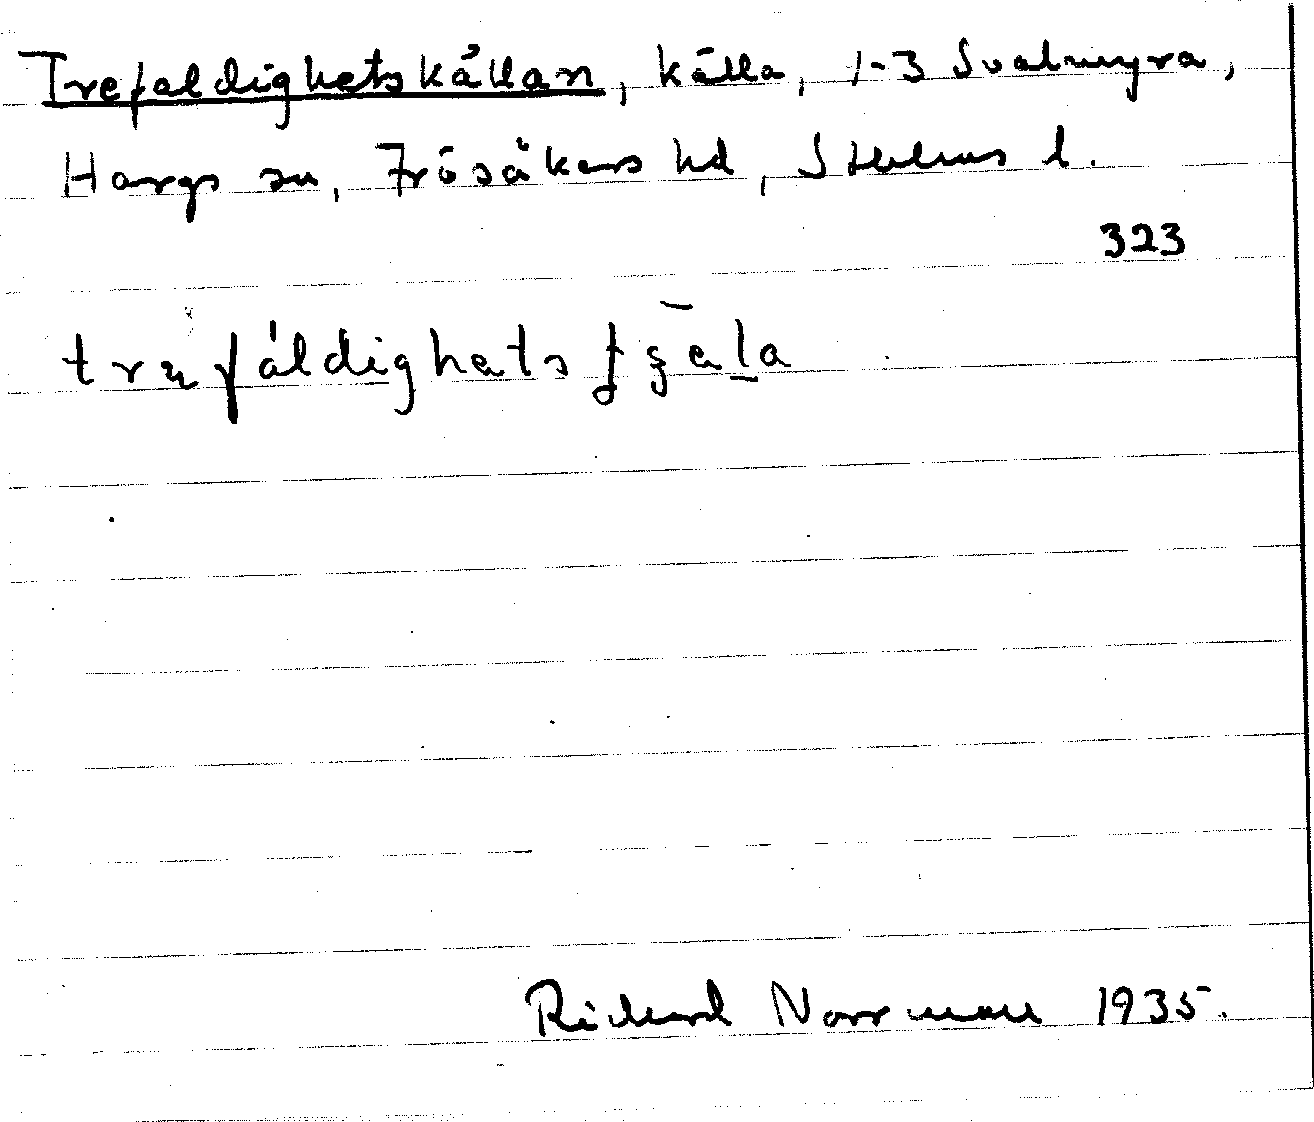 Trefaldighetskällan, källa, 1-3 Svalmyra,
Hargs sn, Frösåkers hd, Sthlms l.
323
Richard Norrman 1935.